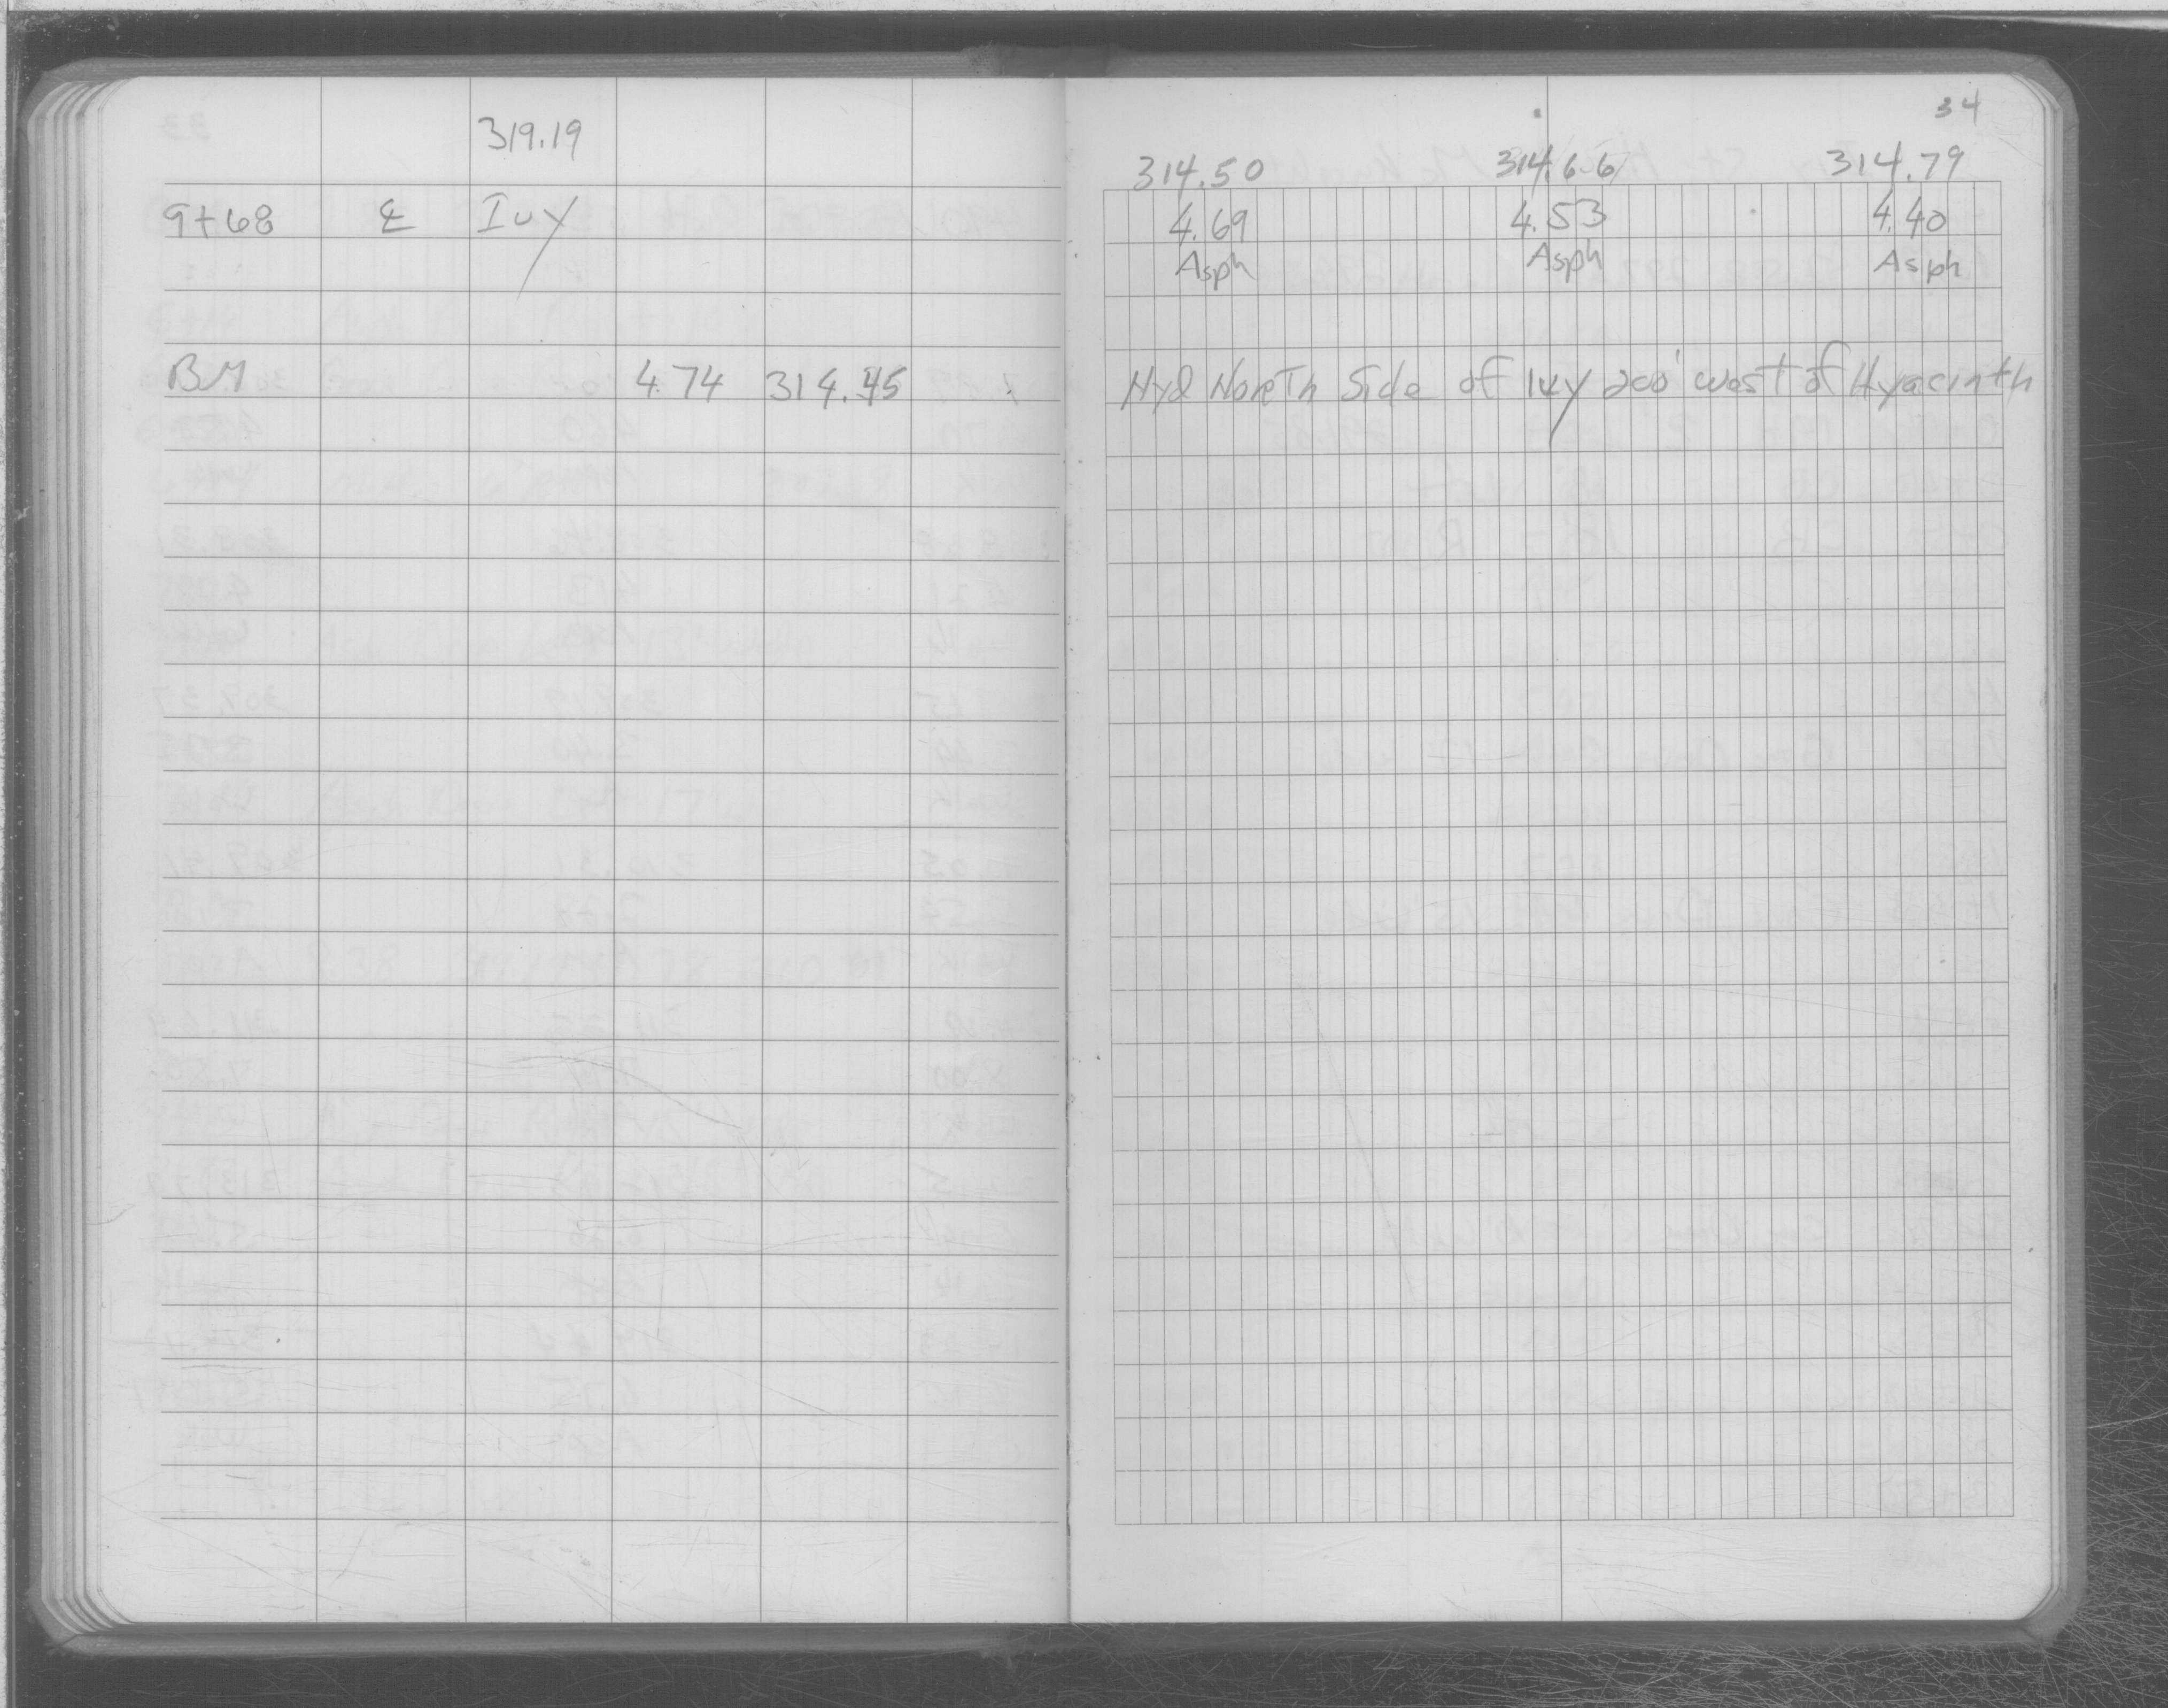 34
319.19
314.50 314.66 314.79
9+68 ℄ Ivy 4.69 4.53 4.40
Asph Asph Asph
BM 4.74 314.45 Hyd North Side of Ivy 200' west of Hyacinth